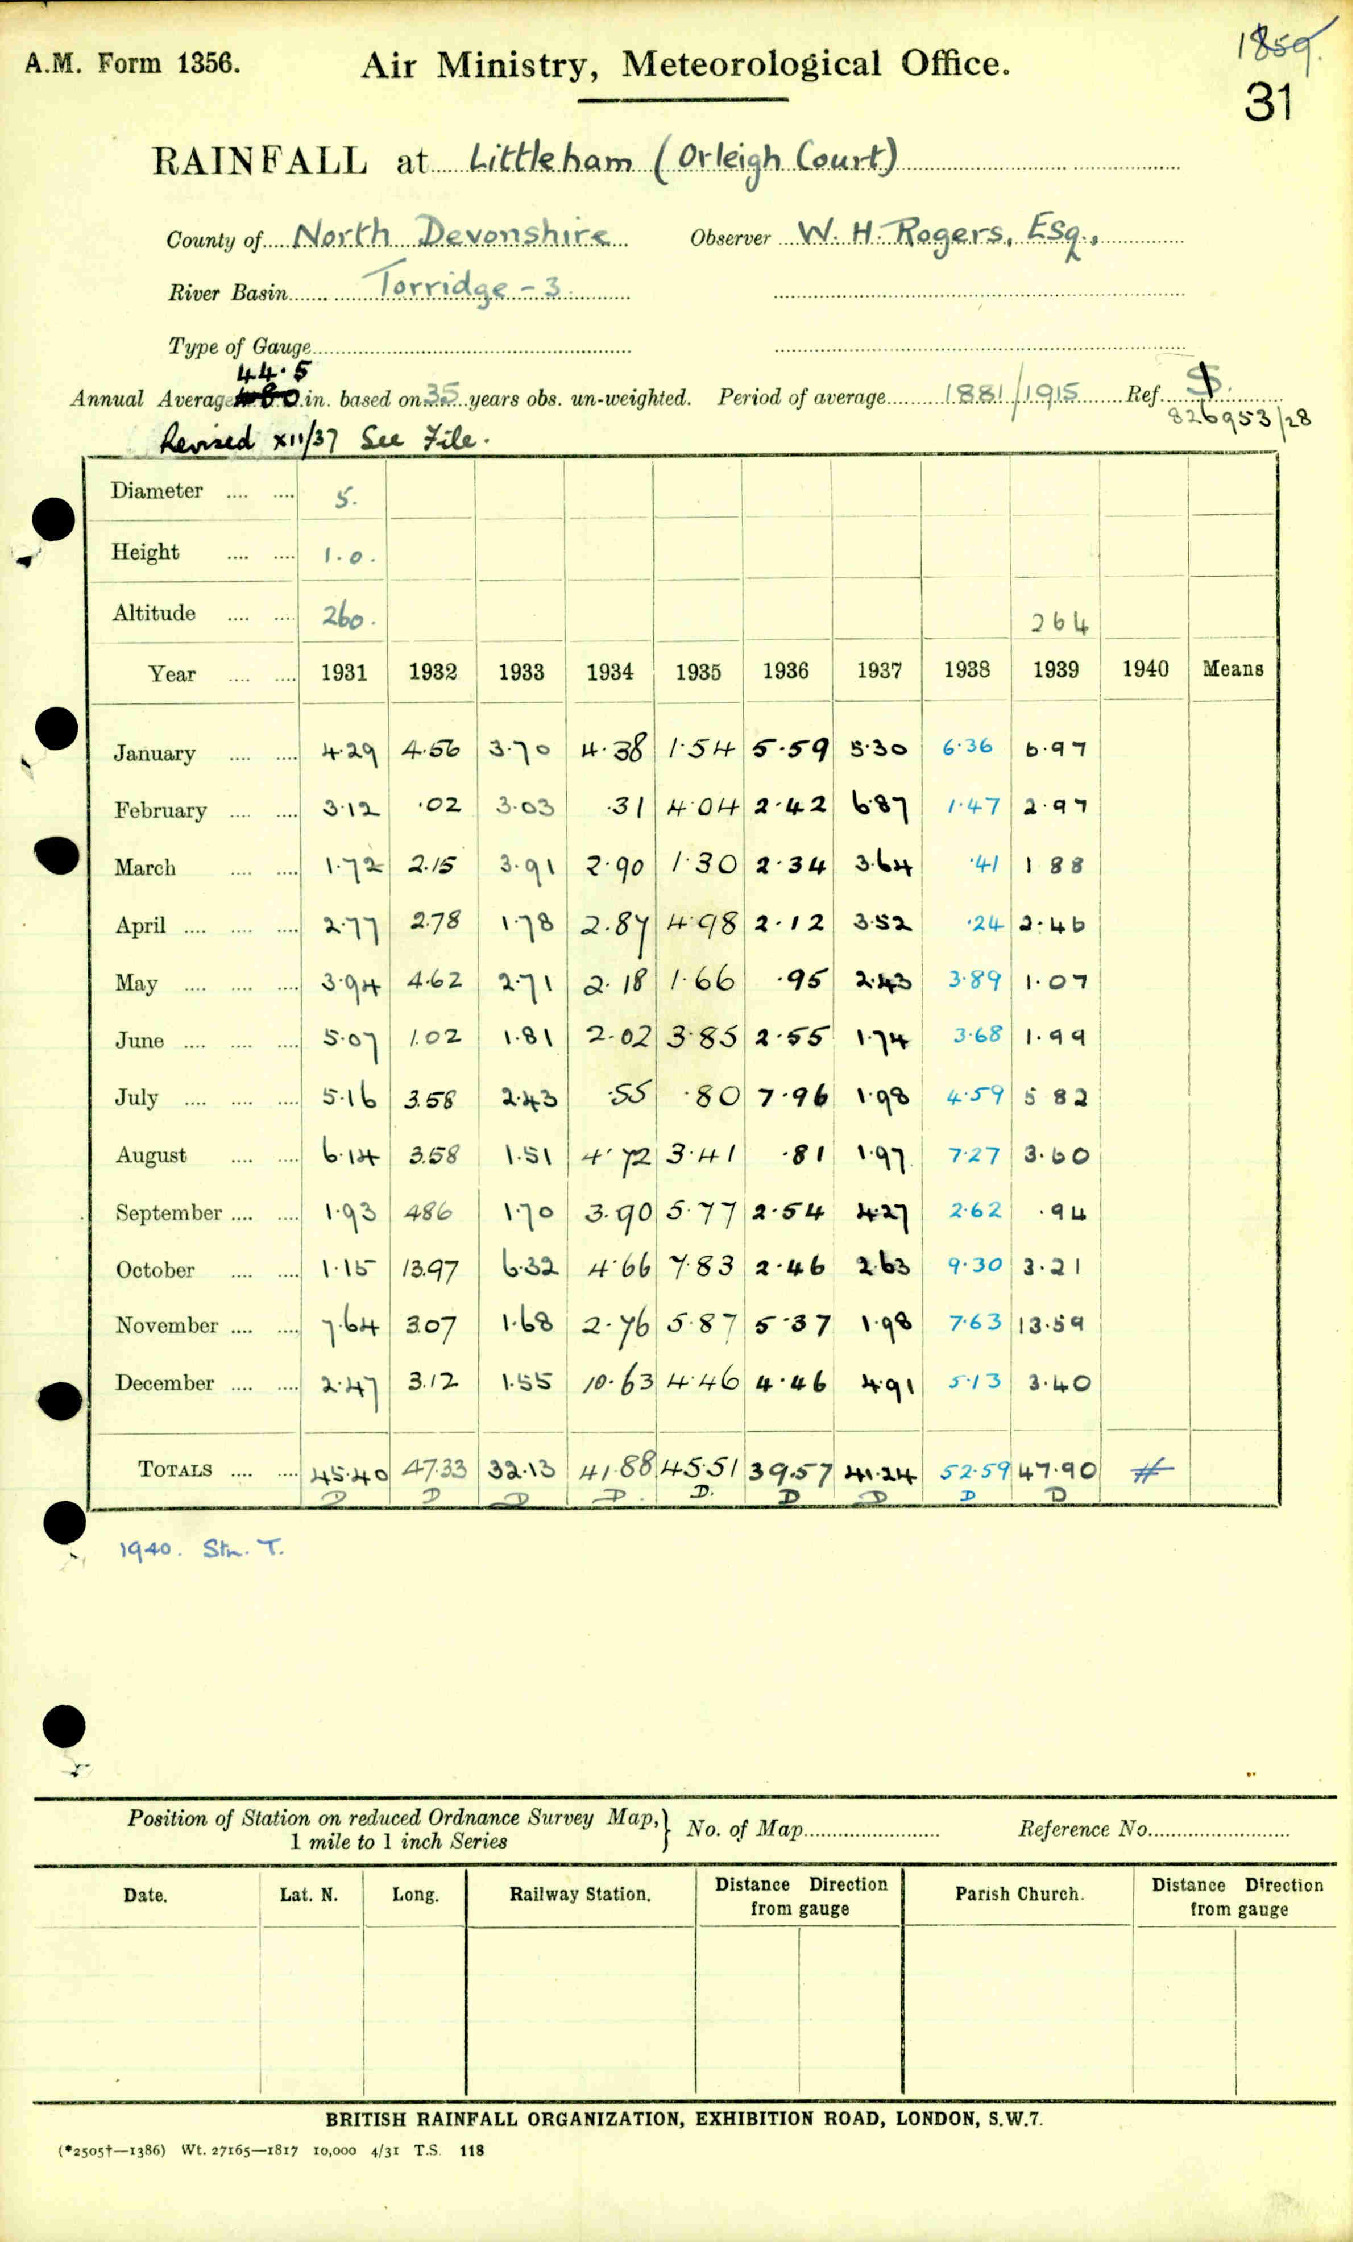 1859.
A.M. Form 1356. Air Ministry, Meteorological Office.
31
RAINFALL at Littleham (Orleigh Court)
County of North Devonshire Observer W. H. Rogers, Esq.,
River Basin Torridge - 3.
Type of Gauge
44.5
Annual Average in. based on 35 years obs. un-weighted. Period of average 1881/1915 Ref.
826953/28
Revised XII/37 See File.
Diameter 5.
Height 1.0.
Altitude 260. 264
Year 1931 1932 1933 1934 1935 1936 1937 1938 1939 1940 Means
January 4.29 4.56 3.70 4.38 1.54 5.59 5.30 6.36 6.97
February 3.12 .02 3.03 .31 4.04 2.42 6.87 1.47 2.97
March 1.72 2.15 3.91 2.90 1.30 2.34 3.64 .41 1 88
April 2.77 2.78 1.78 2.87 4.98 2.12 3.52 .24 2.46
May 3.94 4.62 2.71 2.18 1.66 .95 2.43 3.89 1.07
June 5.07 1.02 1.81 2.02 3.85 2.55 1.74 3.68 1.99
July 5.16 3.58 2.43 .55 .80 7.96 1.98 4.59 5 82
August 6.14 3.58 1.51 4.72 3.41 .81 1.97 7.27 3.60
September 1.93 486 1.70 3.90 5.77 2.54 4.27 2.62 .94
October 1.15 13.97 6.32 4.66 7.83 2.46 2.63 9.30 3.21
November 7.64 3.07 1.68 2.76 5.87 5.37 1.98 7.63 13.59
December 2.47 3.12 1.55 10.63 4.46 4.46 4.91 5.13 3.40
TOTALS 45.40 47.33 32.13 41.88 45.51 39.57 41.24 52.59 47.90 #
D D D D. D. D D D D
1940. Stn. T.
Position of Station on reduced Ordnance Survey Map,} No. of Map Reference No.
1 mile to 1 inch Series
Date. Lat. N. Long. Railway Station. Distance Direction from gauge Parish Church. Distance Direction from gauge
BRITISH RAINFALL ORGANIZATION, EXHIBITION ROAD, LONDON, S.W.7.
(*2505†—1386) Wt. 27165—1817 10,000 4/31 T.S. 118